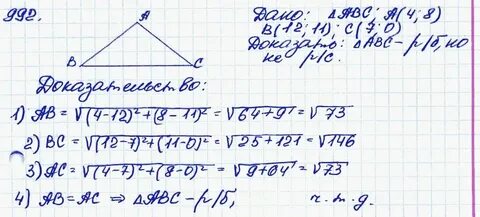 992.
Дано: △ABC; A(4;8)
B(12;11); C(7;0)
Доказать: △ABC – р/б, но
не р/с.
A
B
C
Доказательство:
1) AB = √(4-12)²+(8-11)² = √64+9 = √73
2) BC = √(12-7)²+(11-0)² = √25+121 = √146
3) AC = √(4-7)²+(8-0)² = √9+64 = √73
4) AB = AC ⇒ △ABC – р/б, ч.т.д.